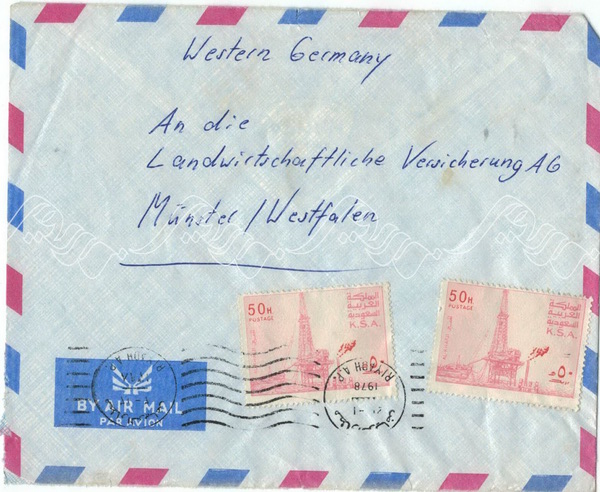 Western Germany
An die
Landwirtschaftliche Versicherung AG
Münster/Westfalen
50H
POSTAGE
المملكة
العربية
السعودية
K.S.A.
٥٠
50H
POSTAGE
المملكة
العربية
السعودية
K.S.A.
٥٠
RIYADH A.P.
1978
BY AIR MAIL
PAR AVION